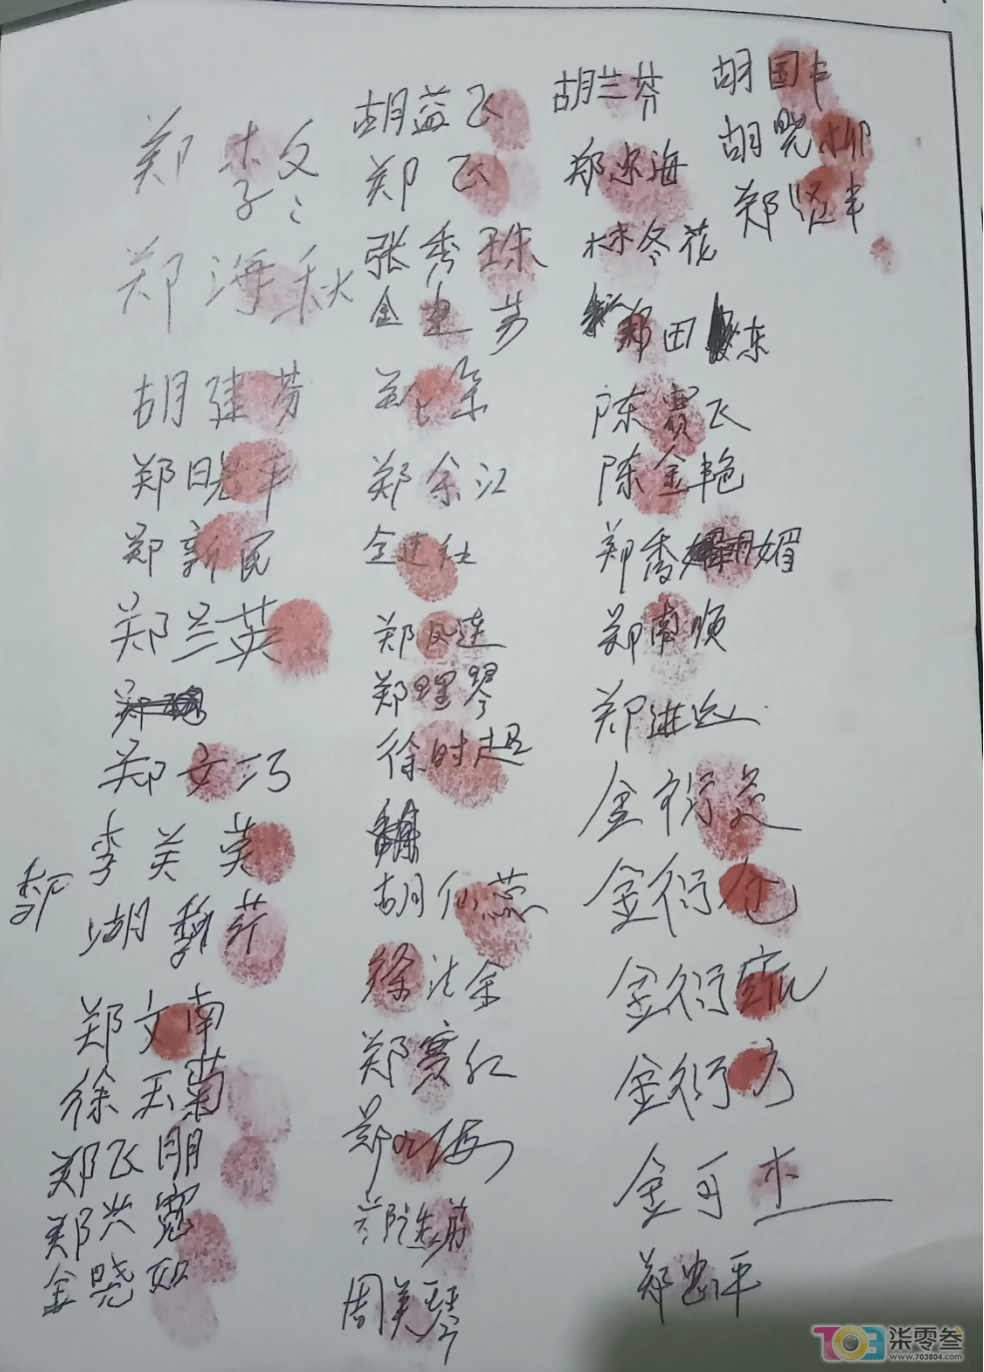 郑李文
郑海秋
胡建芳
郑晓平
郑新民
郑兰英
郑文巧
李美英
胡黎芹
郑文南
徐玉菊
郑飞朋
郑兴宽
金晓如
胡益飞
郑飞
张秀珠
金连芳
郑余江
金建仕
郑凤莲
郑理琴
徐时超
胡仙蕊
徐法余
郑赛红
郑海
周美琴
胡兰芬
郑忠海
林冬花
郑田东
陈赛飞
陈金艳
郑秀媚
郑南顺
郑进远
金衍
金衍仓
金衍
金衍方
金可杰
郑忠平
胡国丰
胡晓柳
郑贤丰
703 柒零叁
www.703804.com